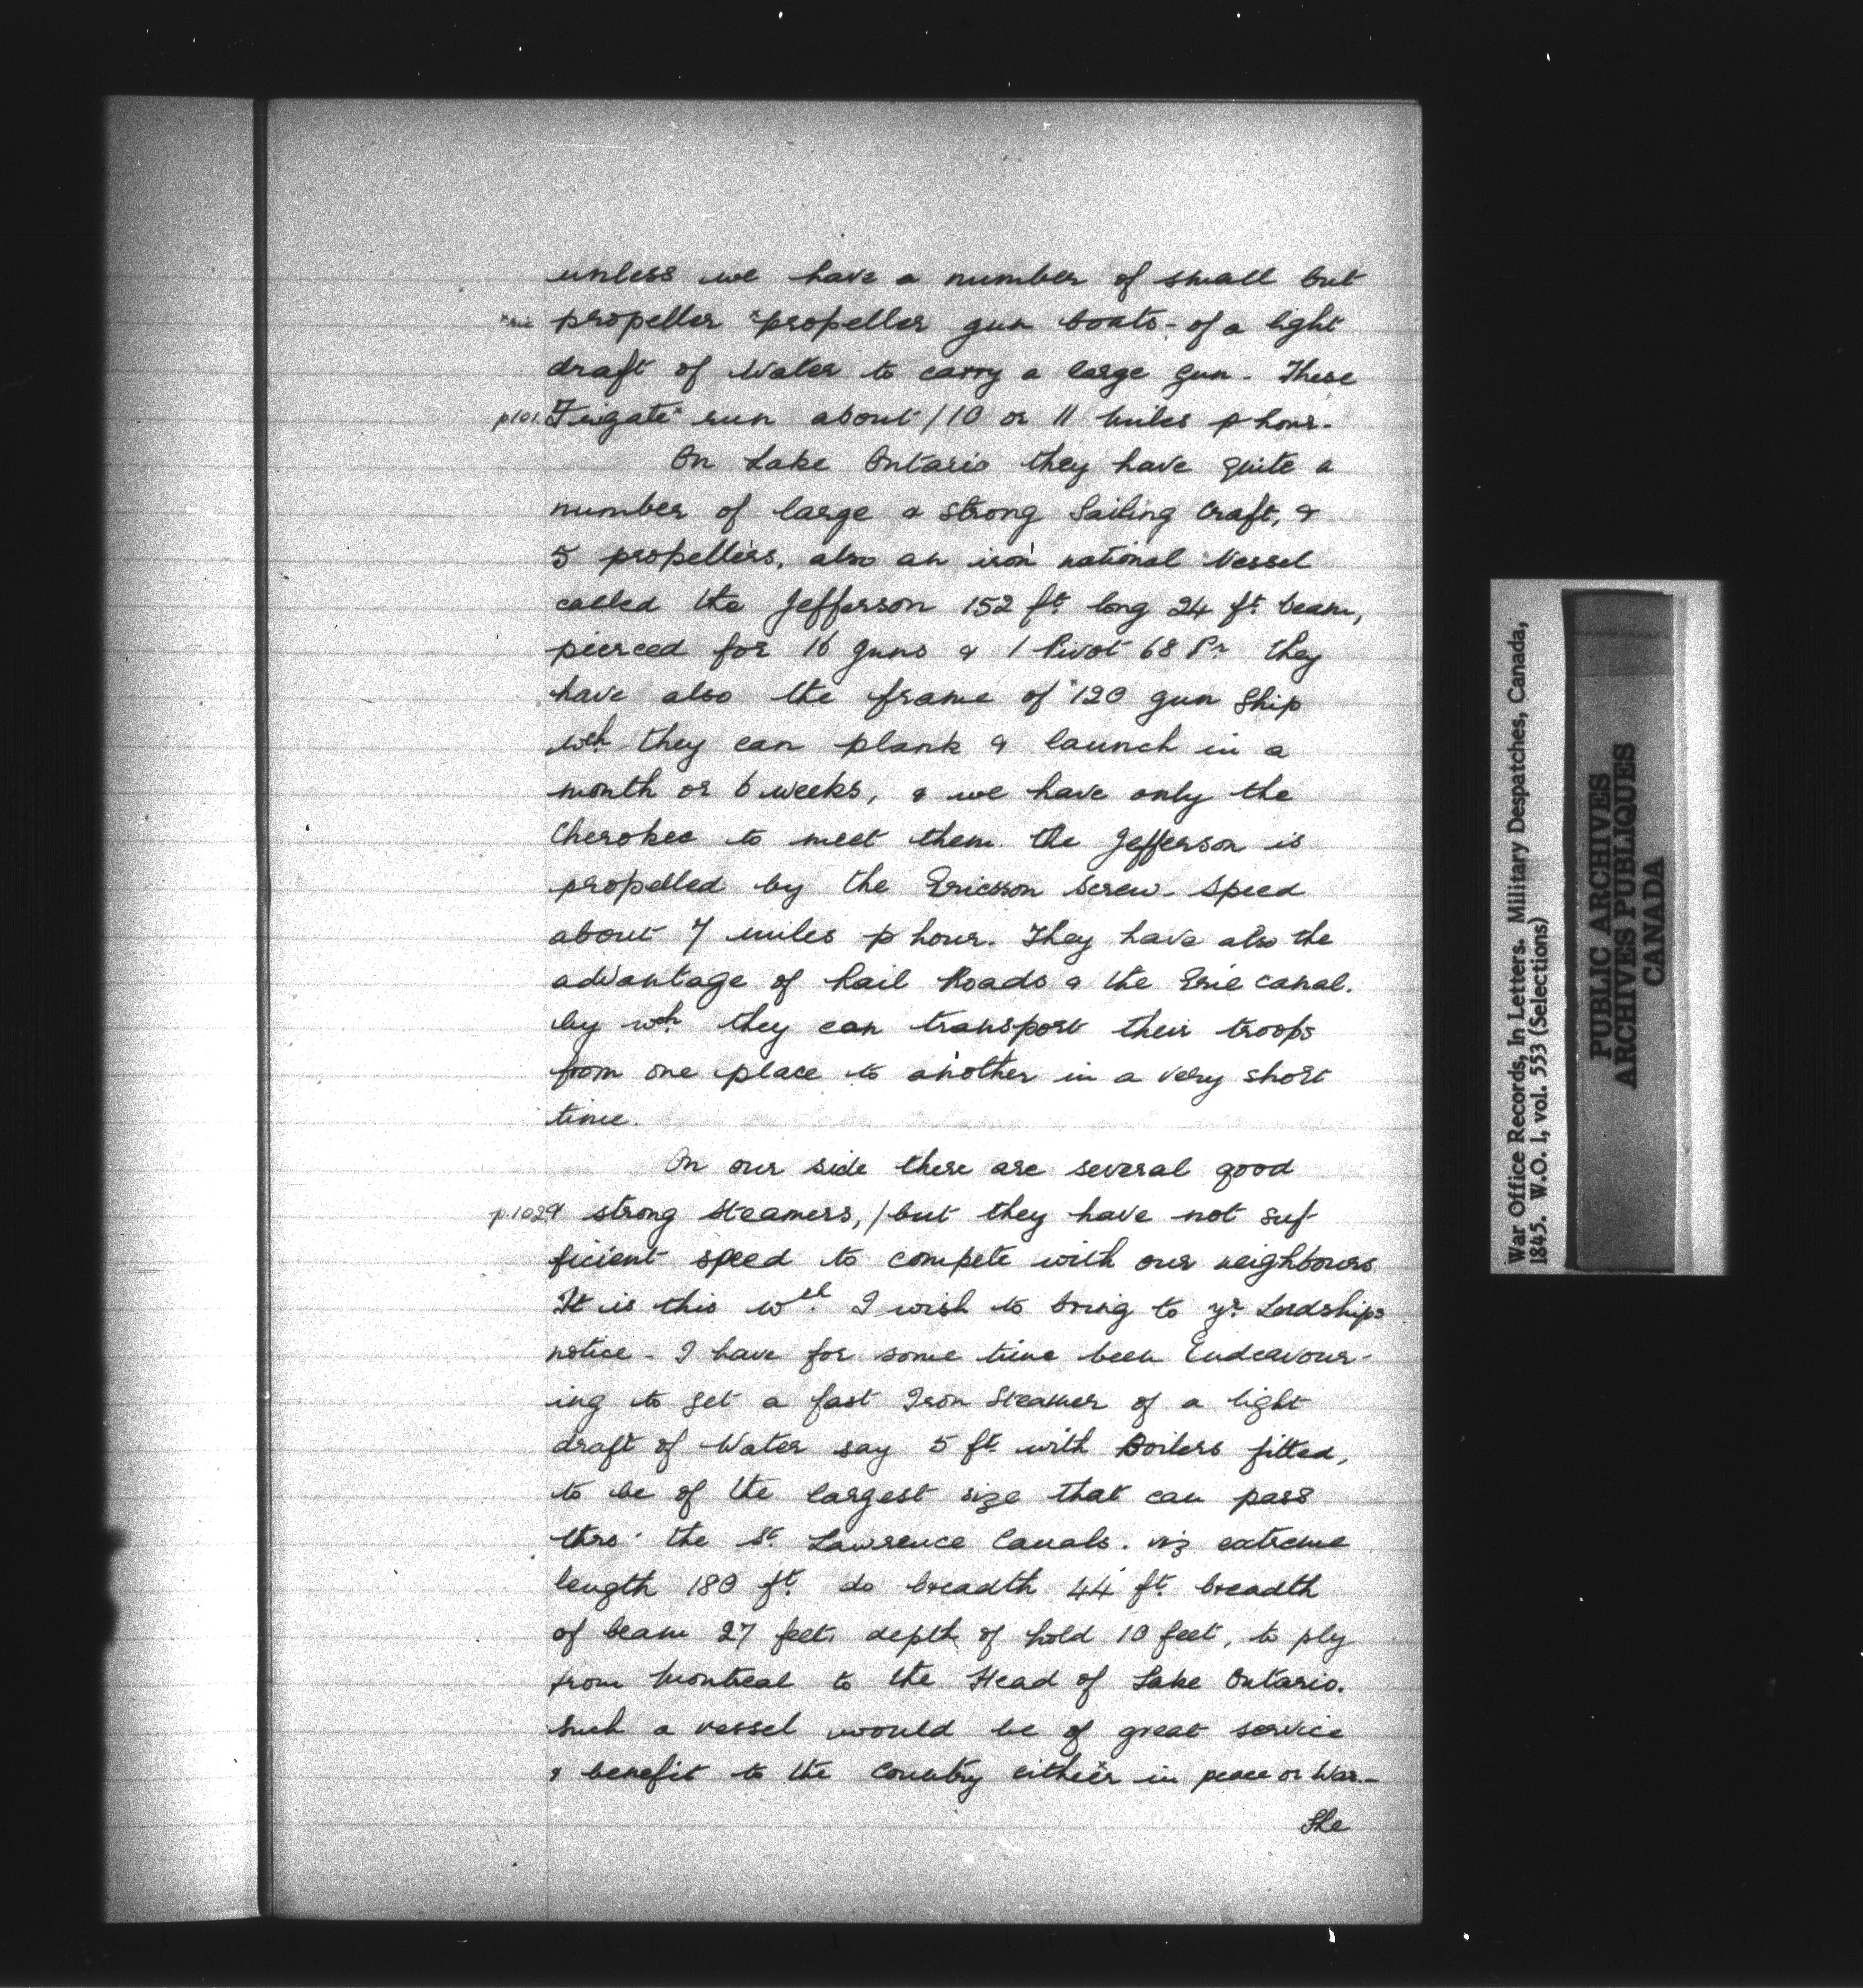 unless we have a number of small but
*sic propeller *propeller gun boats - of a light
draft of Water to carry a large gun. These
p101. Frigate* run about / 10 or 11 miles p hour.
On Lake Ontario they have quite a
number of large & strong Sailing Craft, &
5 propellers, also an iron national Vessel
called the Jefferson 152 ft. long 24 ft. beam,
pierced for 16 guns & 1 Pivot 68 Pr. they
have also the frame of 120 gun Ship
wch they can plank & launch in a
month or 6 weeks, & we have only the
Cherokee to meet them. The Jefferson is
propelled by the Ericsson Screw - Speed
about 7 miles p hour. They have also the
advantage of Rail Roads & the Erie canal.
by wch. they can transport their troops
from one place to another in a very short
time.
On our side there are several good
p.102 & strong Steamers, / but they have not suf-
ficient speed to compete with our neighbours.
It is this wch. I wish to bring to yr. Lordships
notice - I have for some time been Endeavour-
ing to get a fast Iron Steamer of a light
draft of Water say 5 ft. with Boilers fitted,
to be of the largest size that can pass
thro' the St. Lawrence Canals. viz extreme
length 180 ft. do breadth 44 ft. breadth
of beam 27 feet, depth of hold 10 feet, to ply
from Montreal to the Head of Lake Ontario.
Such a vessel would be of great service
& benefit to the Country either in peace or War. -
She
War Office Records, In Letters. Military Despatches, Canada,
1845. W.O. 1, vol. 553 (Selections)
PUBLIC ARCHIVES
ARCHIVES PUBLIQUES
CANADA